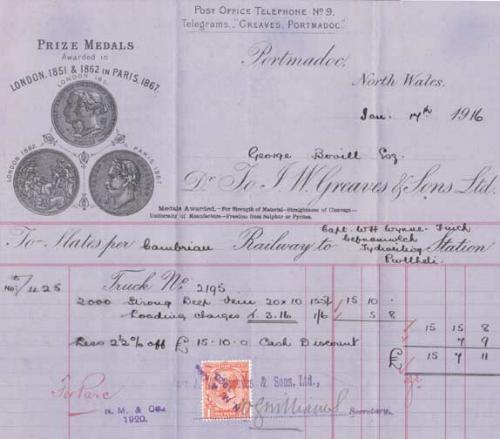 POST OFFICE TELEPHONE Nº 9.
Telegrams, "GREAVES, PORTMADOC."
PRIZE MEDALS
Awarded in
LONDON, 1851 & 1862 IN PARIS, 1867.
LONDON 1851
LONDON 1862
PARIS 1867
Portmadoc,
North Wales.
Jan. 14th 1916
George Bovill Esq.
Dr. To J. W. Greaves & Sons Ltd
Medals Awarded,—For Strength of Material—Straightness of Cleavage—
Uniformity of Manufacture—Freedom from Sulphur or Pyrites.
To Slates per Cambrian Railway to Station
Capt. W H Wynne-Finch
Cefnamwlch
Pwllheli.
No. 425
Truck No. 2195
2000 Strong Deep Vein 20 x 10 155/- 15 10 .
Loading charges 3.16 1/6 5 8
15 15 8
Less 2½% off £ 15.10.0 Cash Discount 7 9
£ 15 7 11
& Sons, Ltd.,
Williams
Secretary.
N. M. &
1920.